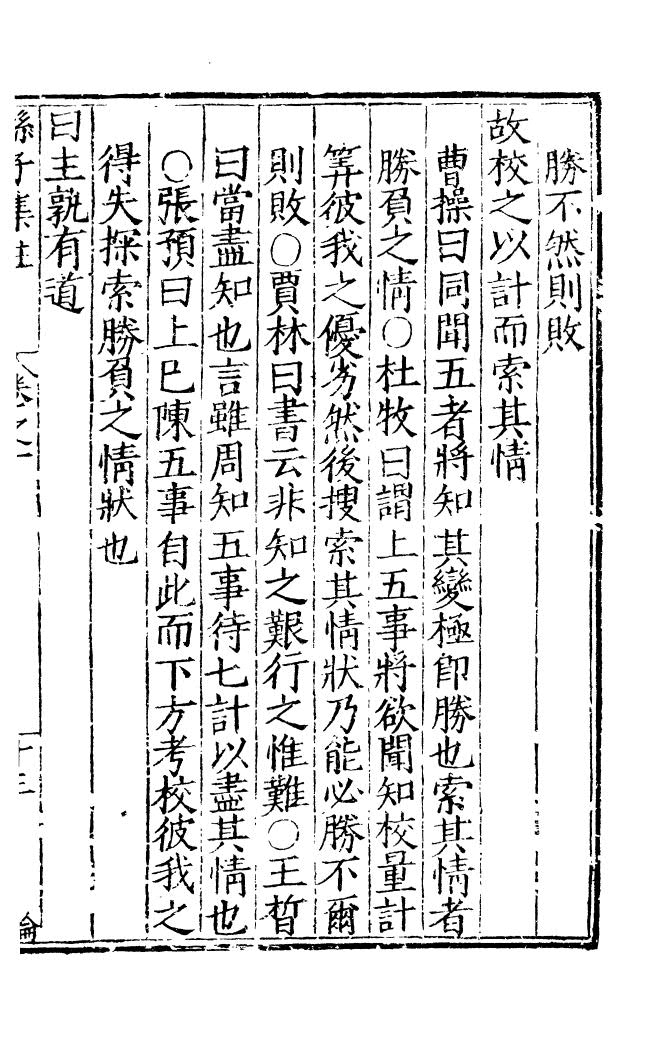 勝不然則敗
故校之以計而索其情
曹操曰同聞五者將知其變極即勝也索其情者
勝負之情○杜牧曰謂上五事將欲聞知校量計
筭彼我之優劣然後搜索其情狀乃能必勝不爾
則敗○賈林曰書云非知之艱行之惟難○王晳
曰當盡知也言雖周知五事待七計以盡其情也
○張預曰上巳陳五事自此而下方考校彼我之
得失探索勝負之情狀也
曰主孰有道
孫子集註 卷之一 十三